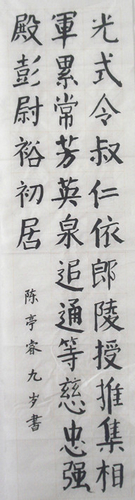 光式令叔仁依郎陵授推集相
軍累常芳英泉追通等慈忠强
殿彭尉裕初居
陈亭睿九岁书